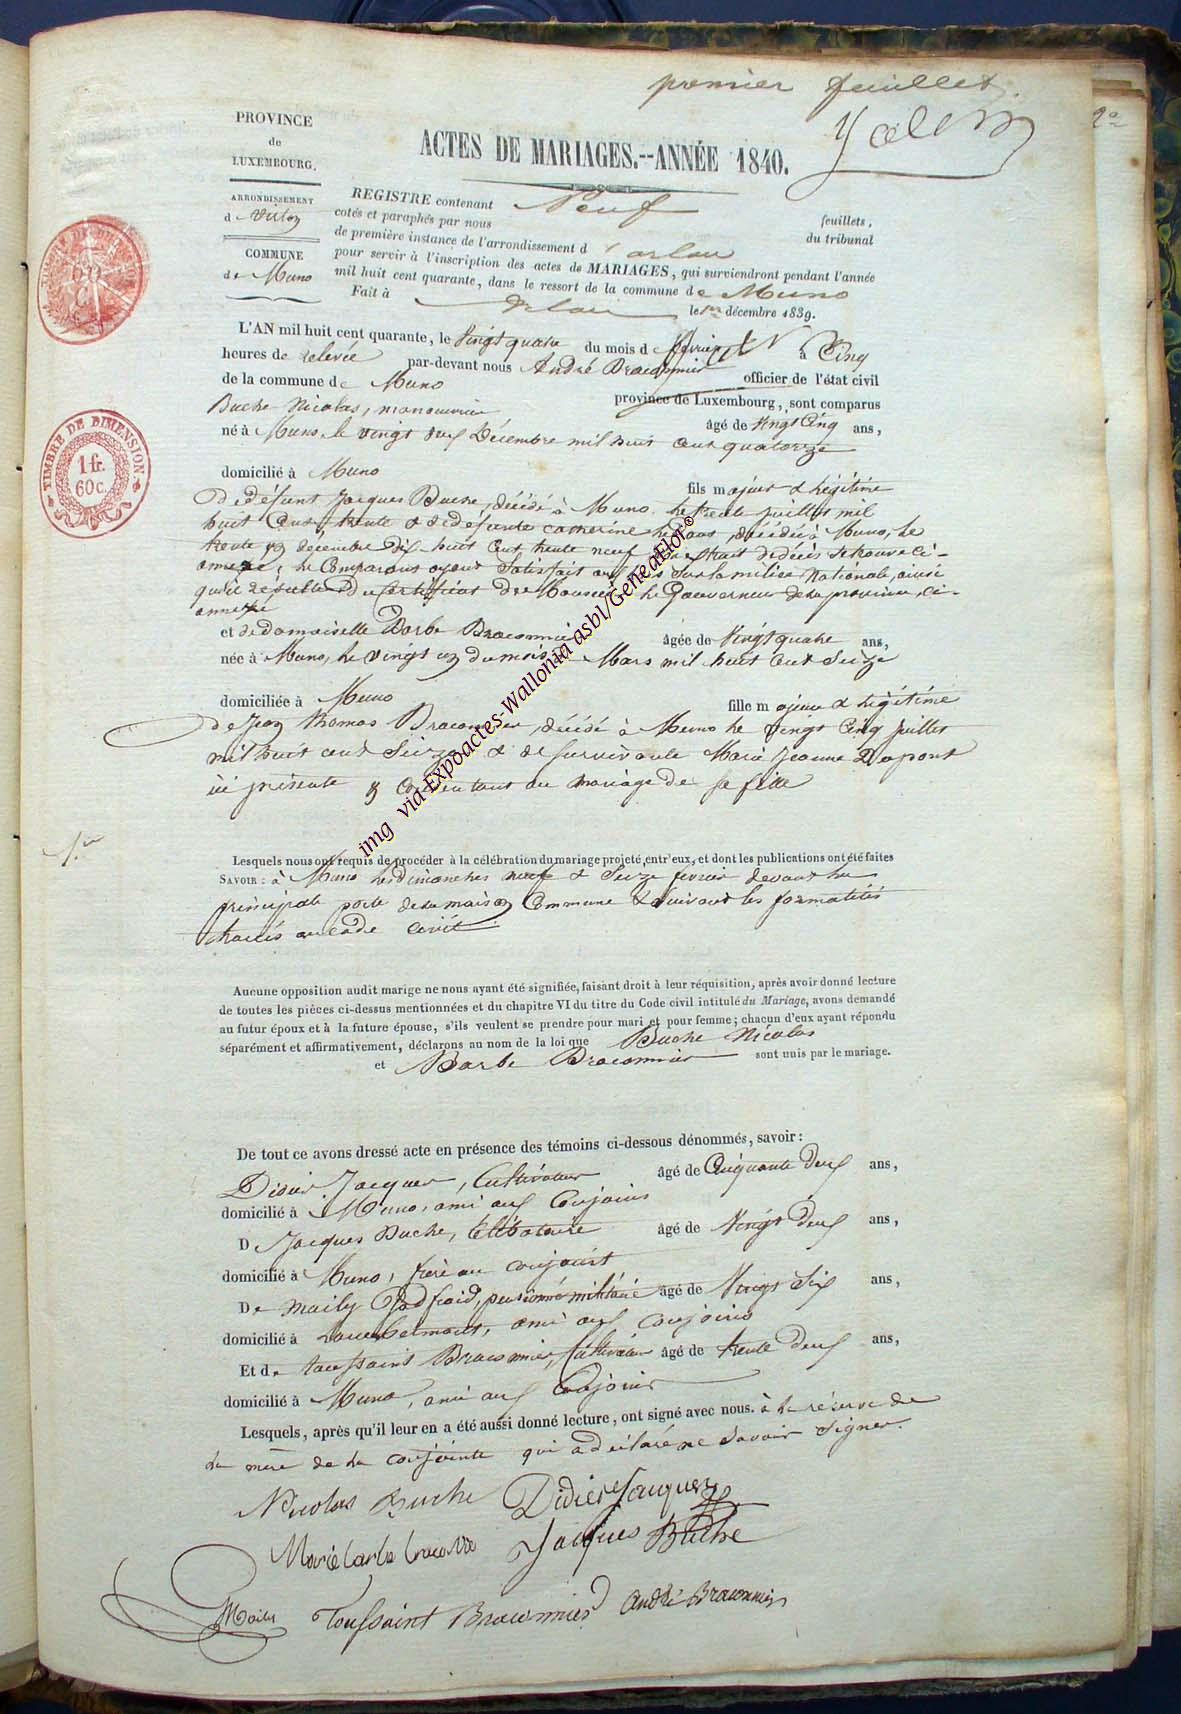 premier feuillet.
2e
PROVINCE
de
LUXEMBOURG.
ACTES DE MARIAGES.--ANNÉE 1840.
ARRONDISSEMENT
d Virton
COMMUNE
de Muno
REGISTRE contenant Neuf feuillets,
cotés et paraphés par nous du tribunal
de première instance de l'arrondissement d'arlon
pour servir à l'inscription des actes de MARIAGES, qui surviendront pendant l'année
mil huit cent quarante, dans le ressort de la commune de Muno
Fait à arlon le 1er décembre 1839.
TIMBRE DE DIMENSION
1 fr.
60 c.
L'AN mil huit cent quarante, le Vingt quatre du mois d février à Cinq
heures de relevée par-devant nous André Braconnier officier de l'état civil
de la commune de Muno province de Luxembourg, sont comparus
Buche Nicolas, manouvrier âgé de Vingt Cinq ans,
né à Muno, le vingt neuf Décembre mil huit Cent quatorze
domicilié à Muno fils majeur & légitime
De défunt Jacques Buche, décédé à Muno le trente juillet mil
huit Cent trente & de défunte Catherine, décédée à Muno, le
trente un décembre dix huit Cent trente neuf extrait de décès se trouve ci-
annexé, le Comparant ayant Satisfait aux lois Sur la milice Nationale, ainsi
qu'il résulte Du Certificat De Monsieur le Gouverneur de la province, ci-
annexé
et de Demoiselle Barbe Braconnier âgée de Vingt quatre ans,
née à Muno, le vingt un du mois de Mars mil huit Cent Seize
domiciliée à Muno fille majeure & légitime
de Jean Thomas Braconnier, décédé à Muno le vingt Cinq juillet
mil huit cent Seize & de survivante Marie Jeanne Dupont
ici présente & Consentant au mariage de sa fille
1er
Lesquels nous ont requis de procéder à la célébration du mariage projeté entr'eux, et dont les publications ont été faites
SAVOIR : à Muno les dimanches neuf & Seize février devant la
principale porte de la maison Commune & suivant les formalités
tracés au code Civil
Aucune opposition audit marige ne nous ayant été signifiée, faisant droit à leur réquisition, après avoir donné lecture
de toutes les pièces ci-dessus mentionnées et du chapitre VI du titre du Code civil intitulé du Mariage, avons demandé
au futur époux et à la future épouse, s'ils veulent se prendre pour mari et pour femme; chacun d'eux ayant répondu
séparément et affirmativement, déclarons au nom de la loi que Buche Nicolas
et Barbe Braconnier sont unis par le mariage.
De tout ce avons dressé acte en présence des témoins ci-dessous dénommés, savoir :
Didier Jacques, Cultivateur âgé de Cinquante Deux ans,
domicilié à Muno, ami aux Conjoins
D Jacques Buche, Célibataire âgé de Vingt Deux ans,
domicilié à Muno, frère au conjoint
De Maily Godfroid, pensionné militaire âgé de Vingt Six ans,
domicilié à ami aux conjoins
Et de Toussaint Braconnier, Cultivateur âgé de trente Deux ans,
domicilié à Muno, ami aux Conjoins
Lesquels, après qu'il leur en a été aussi donné lecture, ont signé avec nous. à la réserve de
la mère de la conjointe qui a déclaré ne Savoir Signer.
Nicolas Buche Didier Jacques
Marie barbe braconnie Jacques Buche
Maily Toussaint Braconnier André Braconnier
img via Expoactes-Wallonia asbl/GeneaFlor©